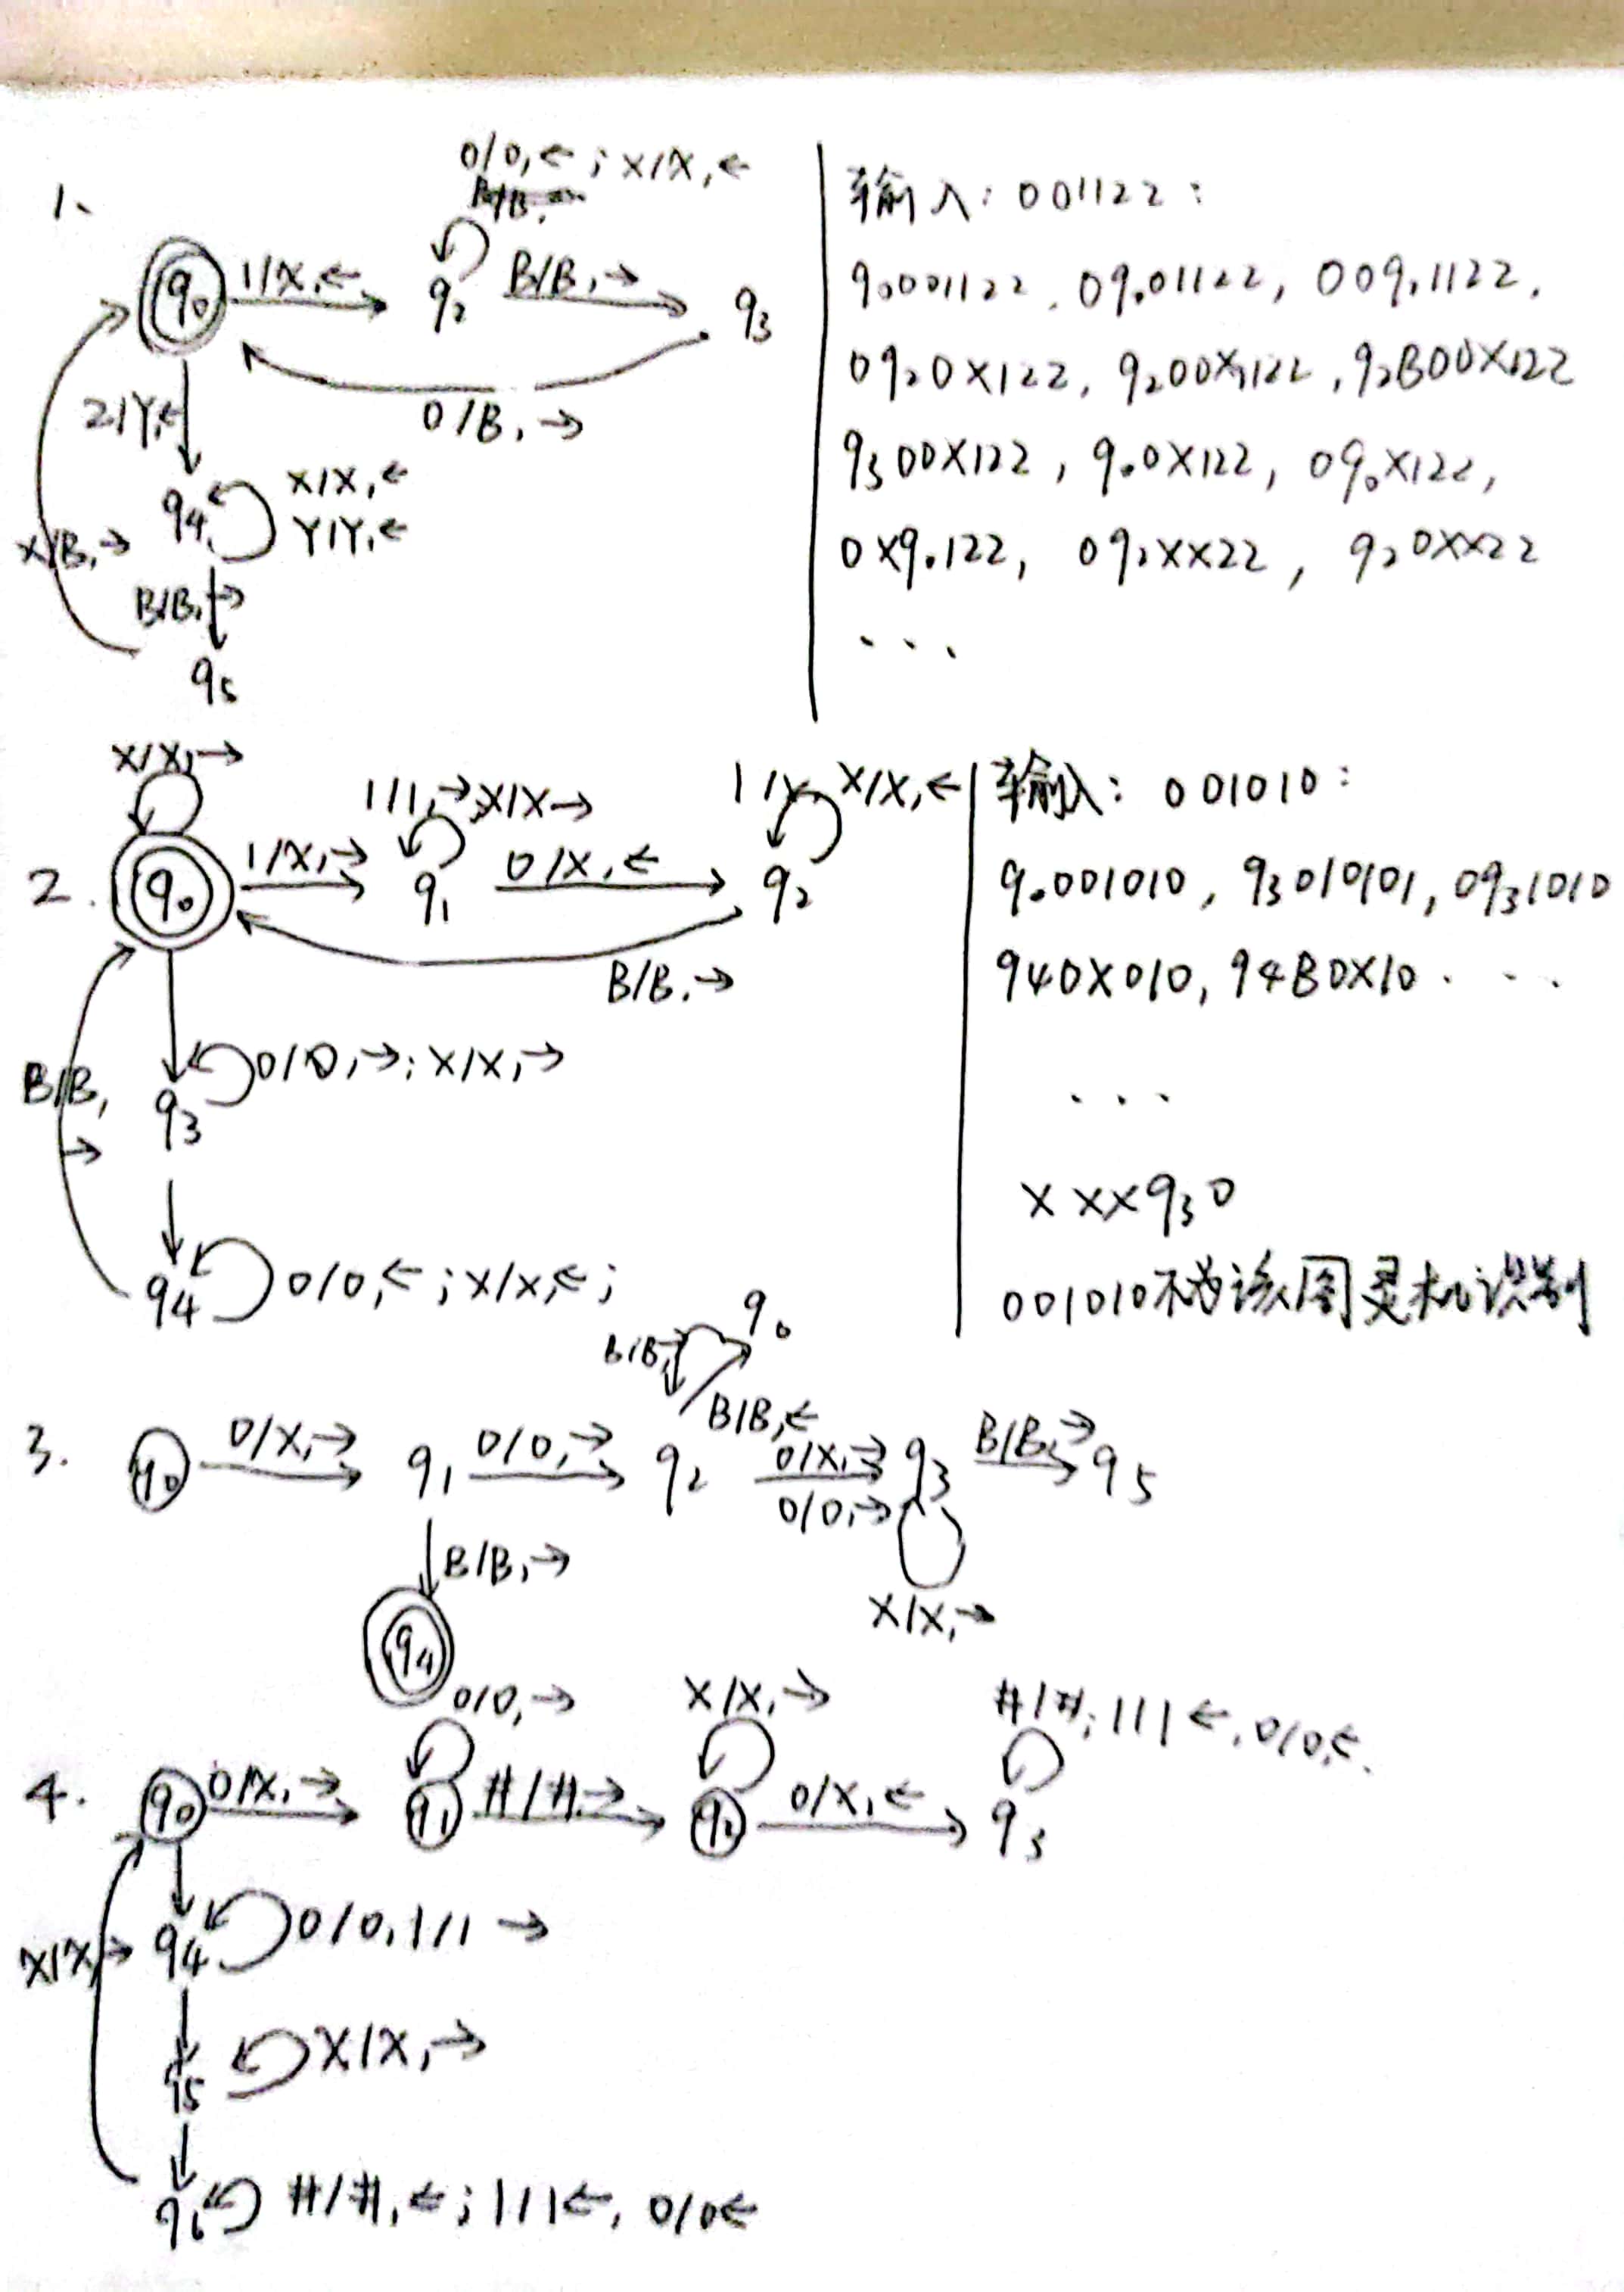 1、
0/0,← ; X/X,←
q0
1/X,←
q2
B/B,→
q3
0/B,→
2/Y,←
q4
X/X,←
Y/Y,←
X/B,→
B/B,→
q5
输入: 001122:
q0001122, 0q001122, 00q01122,
0q20X122, q200X122, q2B00X122
q300X122, q00X122, 0q0X122,
0Xq0122, 0q2XX22, q20XX22
...
2.
X/X,→
q0
1/X,→
1/1,→;X/X→
q1
0/X,←
X/X,←
q2
B/B,→
B/B,
→
q3
0/0,→; X/X,→
q4
0/0,←; X/X,←;
输入: 001010:
q0001010, q3010101, 0q31010
q40X010, q4B0X10 ...
...
XXXq30
001010不为该图灵机识别
3.
q0
0/X,→
q1
0/0,→
q2
B/B,
q0
B/B,←
0/X,→
0/0,→
q3
B/B,→
q5
X/X,→
B/B,→
q4
4.
q0
0/X,→
0/0,→
q1
#/#,→
X/X,→
q2
0/X,←
#/#; 1/1←,0/0,←.
q3
X/X,→
q4
0/0,1/1 →
X/X,→
q6
#/#,←; 1/1←, 0/0←